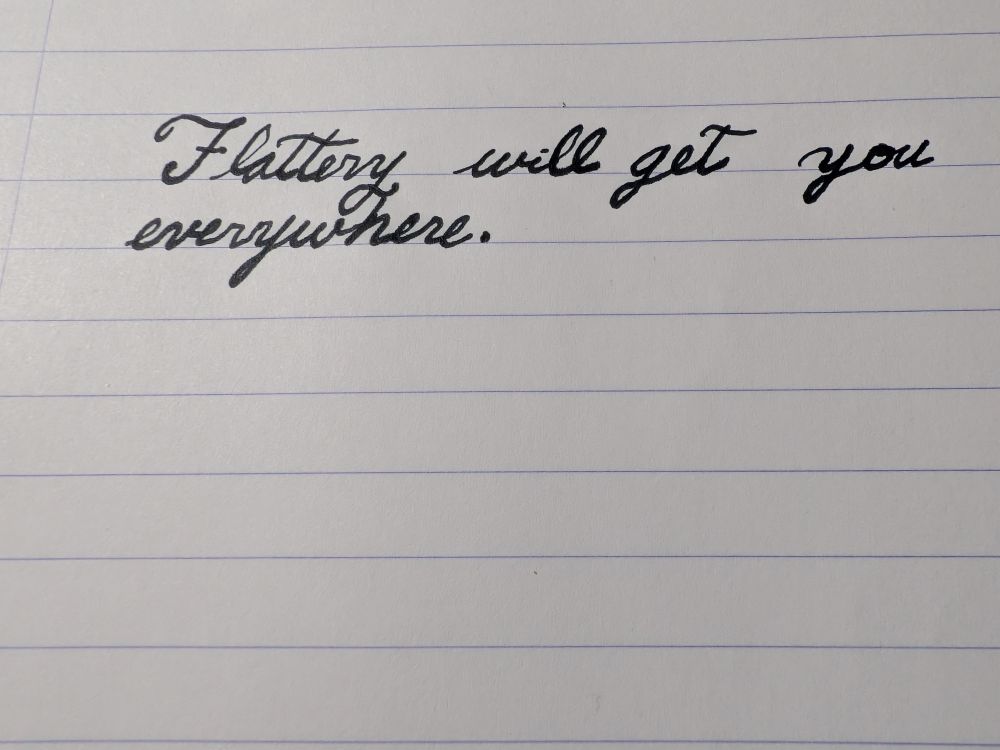 Flattery will get you
everywhere.